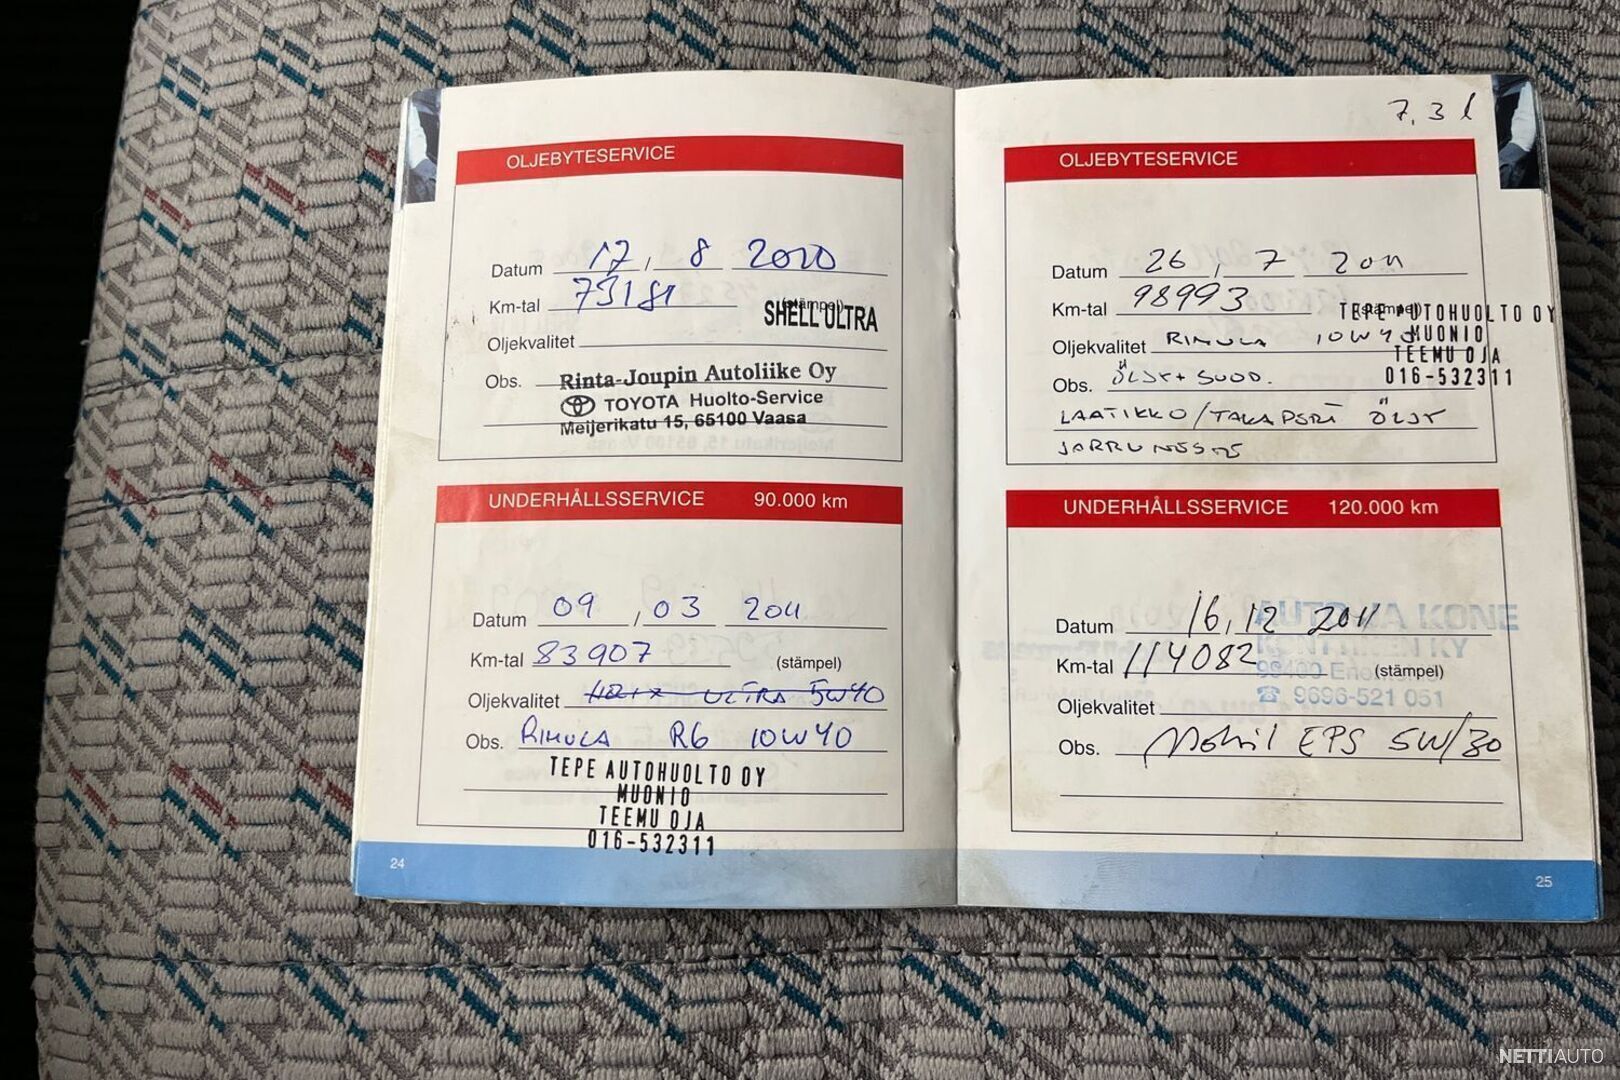 7,3 l
OLJEBYTESERVICE
Datum 17, 8 2010
Km-tal 73181 (stämpel)
SHELL ULTRA
Oljekvalitet
Obs. Rinta-Joupin Autoliike Oy
TOYOTA Huolto-Service
Meijerikatu 15, 65100 Vaasa
UNDERHÅLLSSERVICE 90.000 km
Datum 09, 03 2011
Km-tal 83907 (stämpel)
Oljekvalitet HELIX ULTRA 5W40
Obs. RIMULA R6 10W40
TEPE AUTOHUOLTO OY
MUONIO
TEEMU OJA
016-532311
24
OLJEBYTESERVICE
Datum 26, 7 2011
Km-tal 98993 (stämpel)
TEPE AUTOHUOLTO OY
Oljekvalitet RIMULA 10W40
MUONIO
TEEMU OJA
Obs. ÖLJY+ SUOD.
016-532311
LAATIKKO/TAKAPERÄ ÖLJY
JARRUNESTE
UNDERHÅLLSSERVICE 120.000 km
Datum 16, 12 2011
AUTO JA KONE
Km-tal 114082 (stämpel)
KY
☎ 9696-521 051
Oljekvalitet
Obs. Mobil EPS 5W/30
25
NETTIAUTO